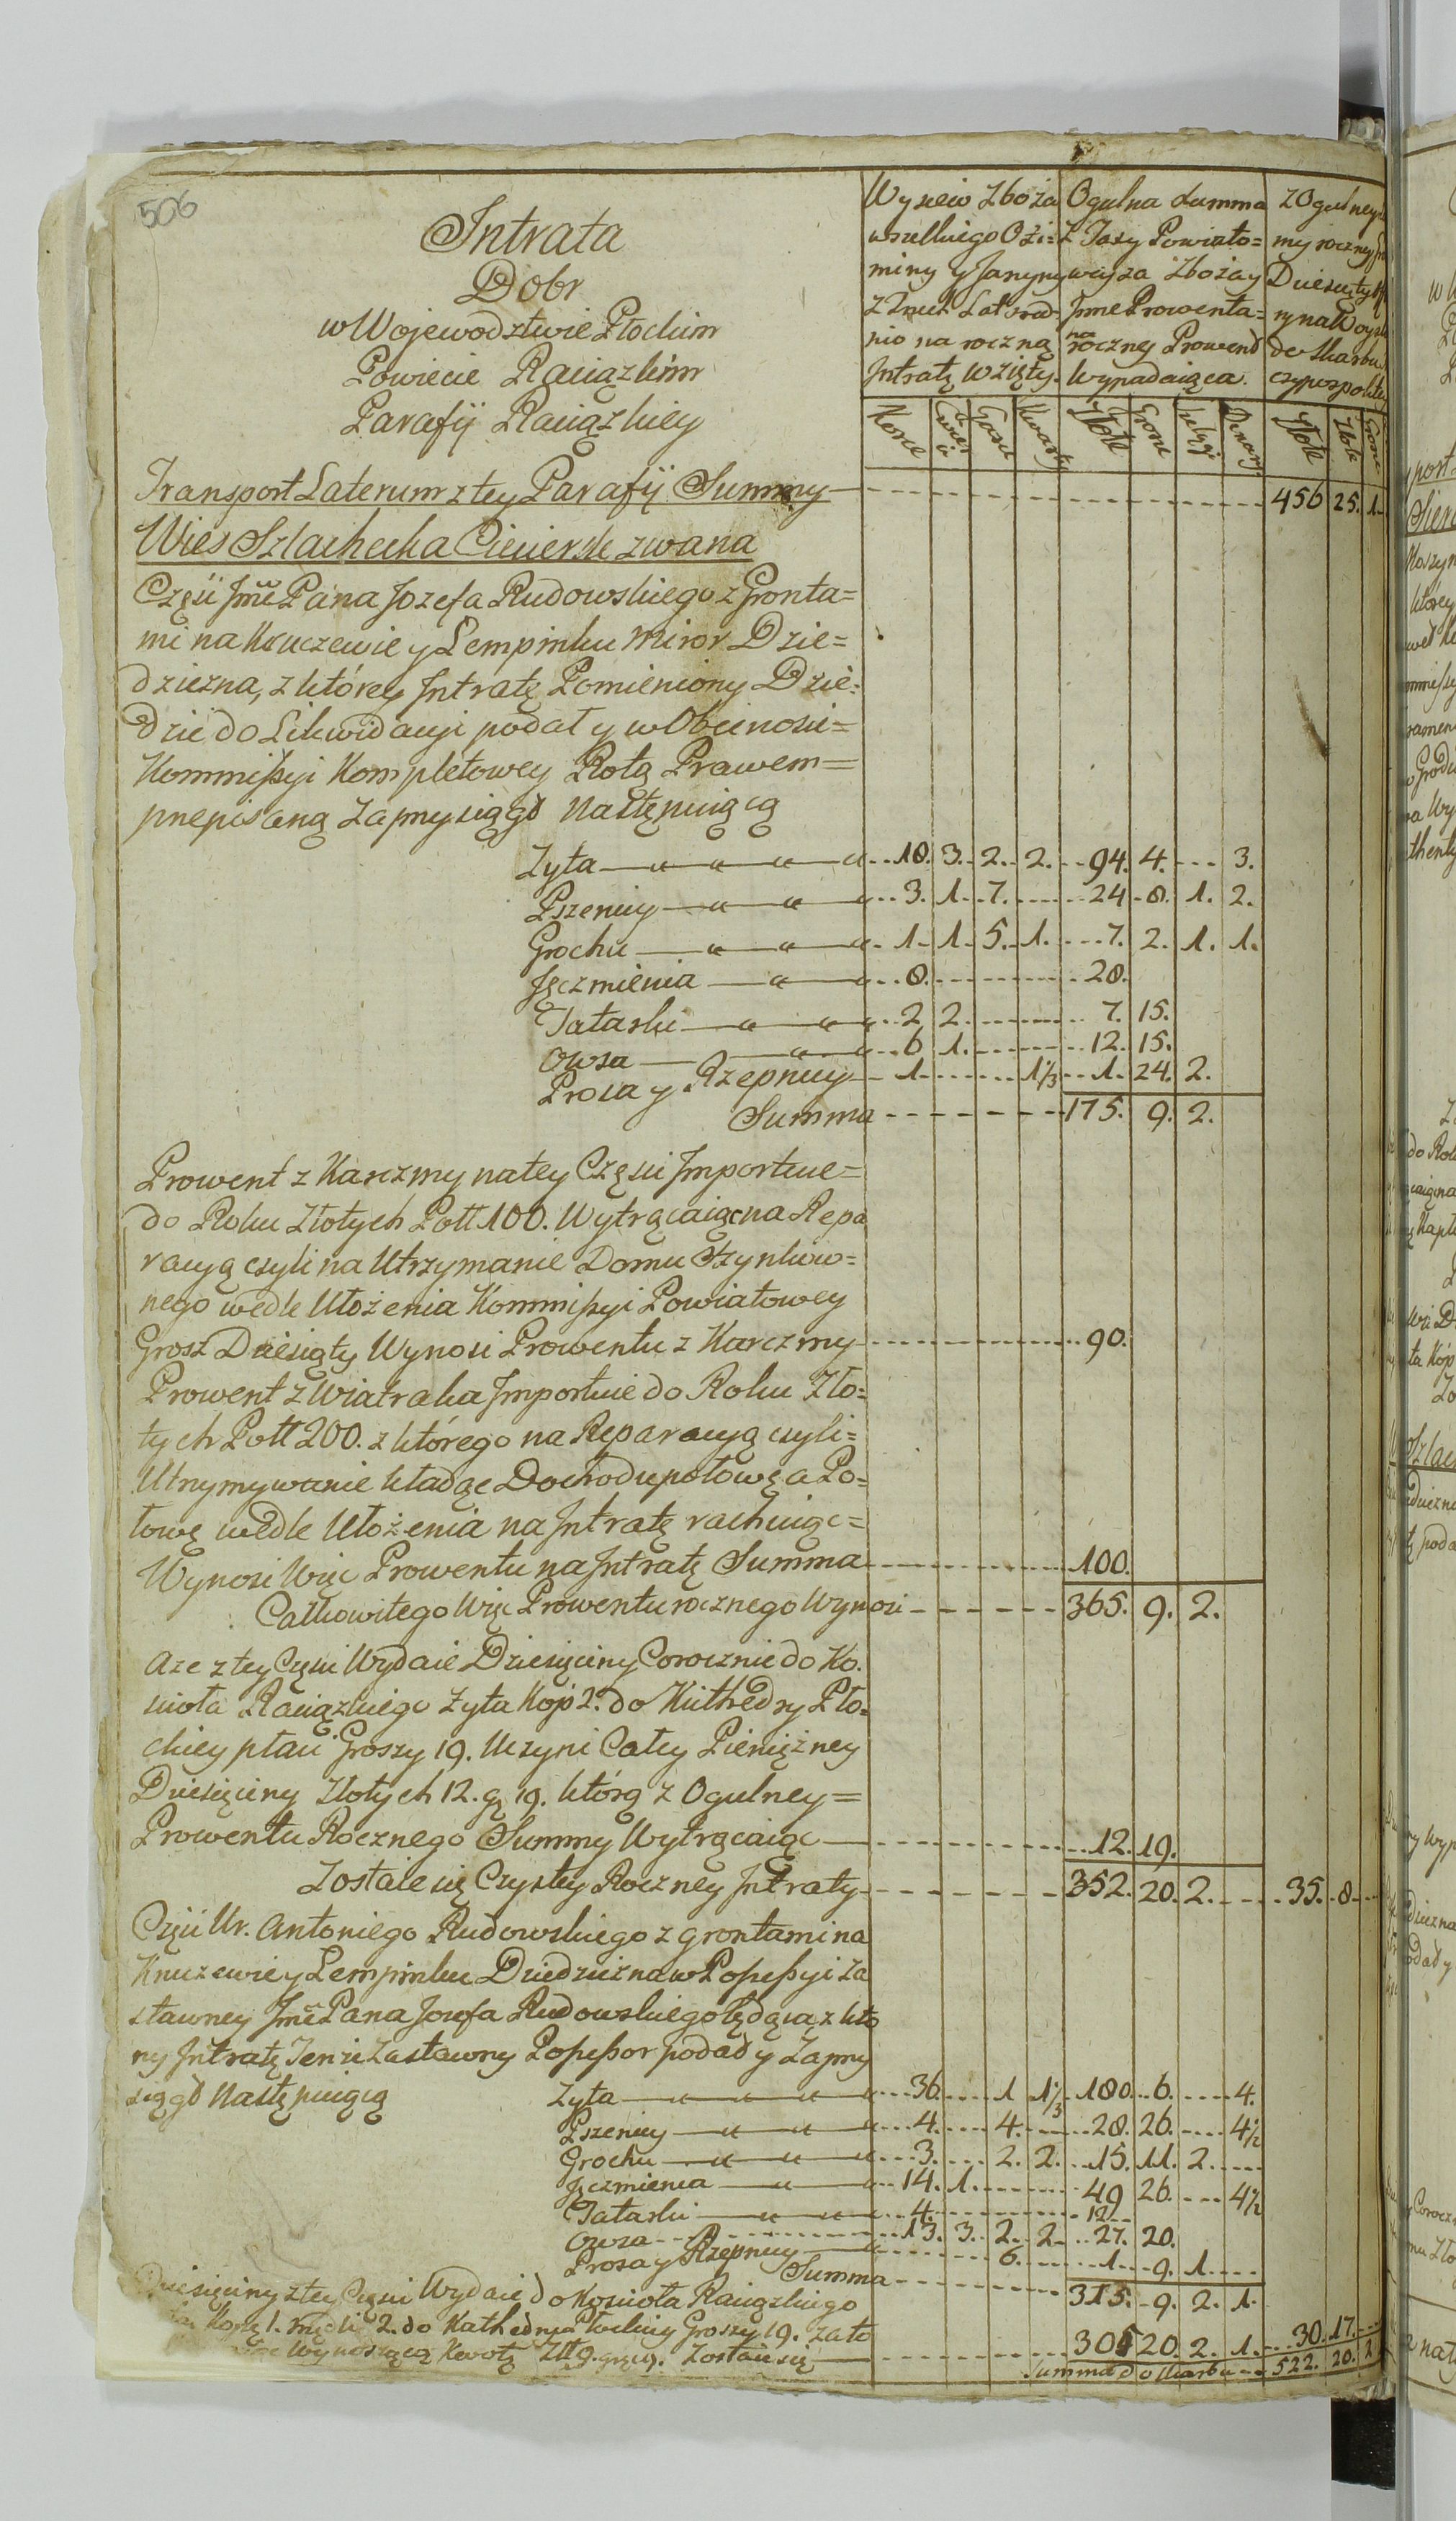 506
Intrata
Dobr
w Wojewodztwie Płockim
Powiecie Raciązkim
Parafij Raciązkiey
Wysiew Zboża
wszelkiego Ozi=
miny y Jaryny
z Dwuch Lat sred=
nio na roczną
Intratę wzięty.
Ogulna Summa
z Taxy Powiato=
wey za Zboża y
Inne Prowenta=
na
roczney Prowend
Wypadaiąca.
z Ogulney
my roczney
Dziesięty
ry na Woysk
do Skarbu
czypospolitey
Korce Cwierci Garce Kwarty Złote Grosze Szelągi Denary Złote Złote Grosze
Transport Laterum z tey Parafij Summy 456 25. 1.
Wies Szlachecka Cieciersk zwana
Częsć Jmć Pana Jozefa Rudowskiego z Gronta=
mi na Kruczewie y Lempinku miror Dzie=
dziczna, z którey Intratę Pomieniony Dzie=
dzic do Likwidacyi podał y w Obecnosci=
Kommissyi Kompletowey Rotą Prawem=
przepisaną zaprzysiągł następuiącą
Zyta 18. 3. 2. 2. 94. 4. 3.
Pszenicy 3. 1. 7. 24 8. 1. 2.
Grochu 1. 1. 5. 1. 7. 2. 1. 1.
Jęczmienia 8. 28.
Tatarki 2 2. 7. 15.
Owsa 6 1. 12. 15.
Prosa y Rzepnicy 1. 1⅓ 1. 24. 2.
Summa 175. 9. 2.
Prowent z Karczmy na tey Częsci Importuie=
do Roku Złotych Poll 100. Wytrącaiąc na Repa
racyą czyli na Utrzymanie Domu Szynkow=
nego wedle Ułożenia Kommissyi Powiatowey
Grosz Dziesiąty Wynosi Prowentu z Karczmy 90.
Prowent z Wiatraka Importuie do Roku Zło=
tych Poll 200. z którego na Reparacyą czyli=
Utrzymywanie kładąc Dochodu połowę a Po=
łowę wedle Ułożenia na Intratę rachuiąc=
Wynosi Więc Prowentu na Intratę Summa 100.
Całkowitego Więc Prowentu rocznego Wynosi 365. 9. 2.
a ze z tey Częsci Wydaie Dziesięciny Corocznie do Ko.
scioła Raciązkiego Zyta Kop 2. do Kathedry Pło=
ckiey płaci Groszy 19. Uczyni Całey Pieniężney
Dziesięciny Złotych 12. gr 19. którą z Ogulney=
Prowentu Rocznego Summy Wytrącaiąc 12. 19.
Zostaie się Czystey Roczney Intraty 352. 20. 2. 35. 8
Częsć Ur. Antoniego Rudowskiego z grontami na
Kruczewie y Lempinku Dziedziczna w Possessyi Za
stawney Jmć Pana Jozefa Rudowskiego będąca z któ
ry Intratę Tenże Zastawny Possessor podał y Zaprzy
siągł Następuiącą
Zyta 36. 1 1⅓ 180. 6. 4.
Pszenicy 4. 4. 28. 26. 4½
Grochu 3. 2. 2. 15. 11. 2.
Jęczmienia 14. 1. 49 26. 4½
Tatarki 4. 12
Owsa 13. 3. 2. 2. 27. 20.
Prosa y Rzepnicy 6. 1. 9. 1.
Summa 315. 9. 2. 1.
Dziesięciny z tey Częsci Wydaie do Koscioła Raciązkiego
Kopę 1. 2. do Kathedry Płockiey Groszy 19. za to
Wynoszącą Kwotę Zll 9. gr 19. Zostaie się 305 20. 2. 1. 30. 17.
Summa do Skarbu 522. 20. 1